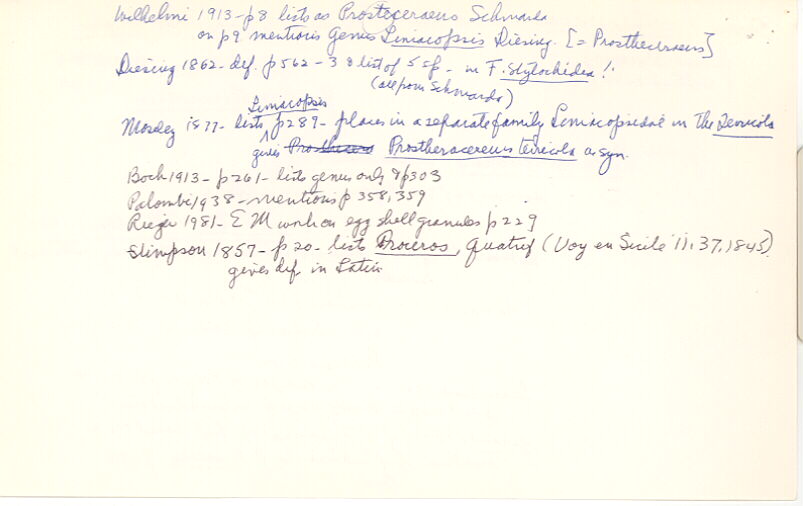 Wilhelmi 1913 - p8 lists as Prosteceraeus Schmarda
on p9 mentions Genus Leniacopsis Diesing. [= Prostheceraeus]
Diesing 1862 - def. p562 - 3 & list of 5 sp. - in F. Stylochidea !
(all from Schmarda)
Leniacopsis
Moseley 1877 - lists p289 - places in a separate family Leniacopsidae in the Terricola
gives Prostheracereus terricola as syn.
Bock 1913 - p261 - lists genus only & p303
Palombi 1938 - mentions p 358, 359
Rieger 1981 - EM work on egg shell granules p 229
Stimpson 1857 - p20 - lists Proceros, Quatref (Voy en Sicile ii. 37, 1845)
gives def. in Latin